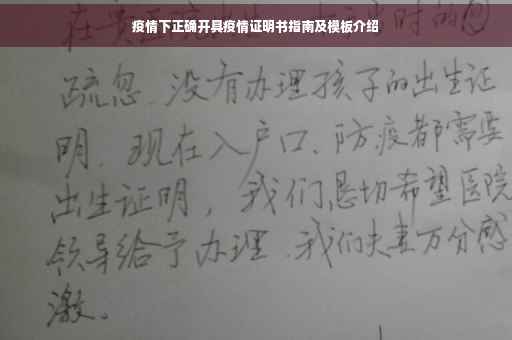 疫情下正确开具疫情证明书指南及模板介绍
时的
疏忽、没有办理孩子的出生证
明、现在入户口、防疫都需要
出生证明，我们恳切希望医院
领导给予办理、我们夫妻万分感
激。